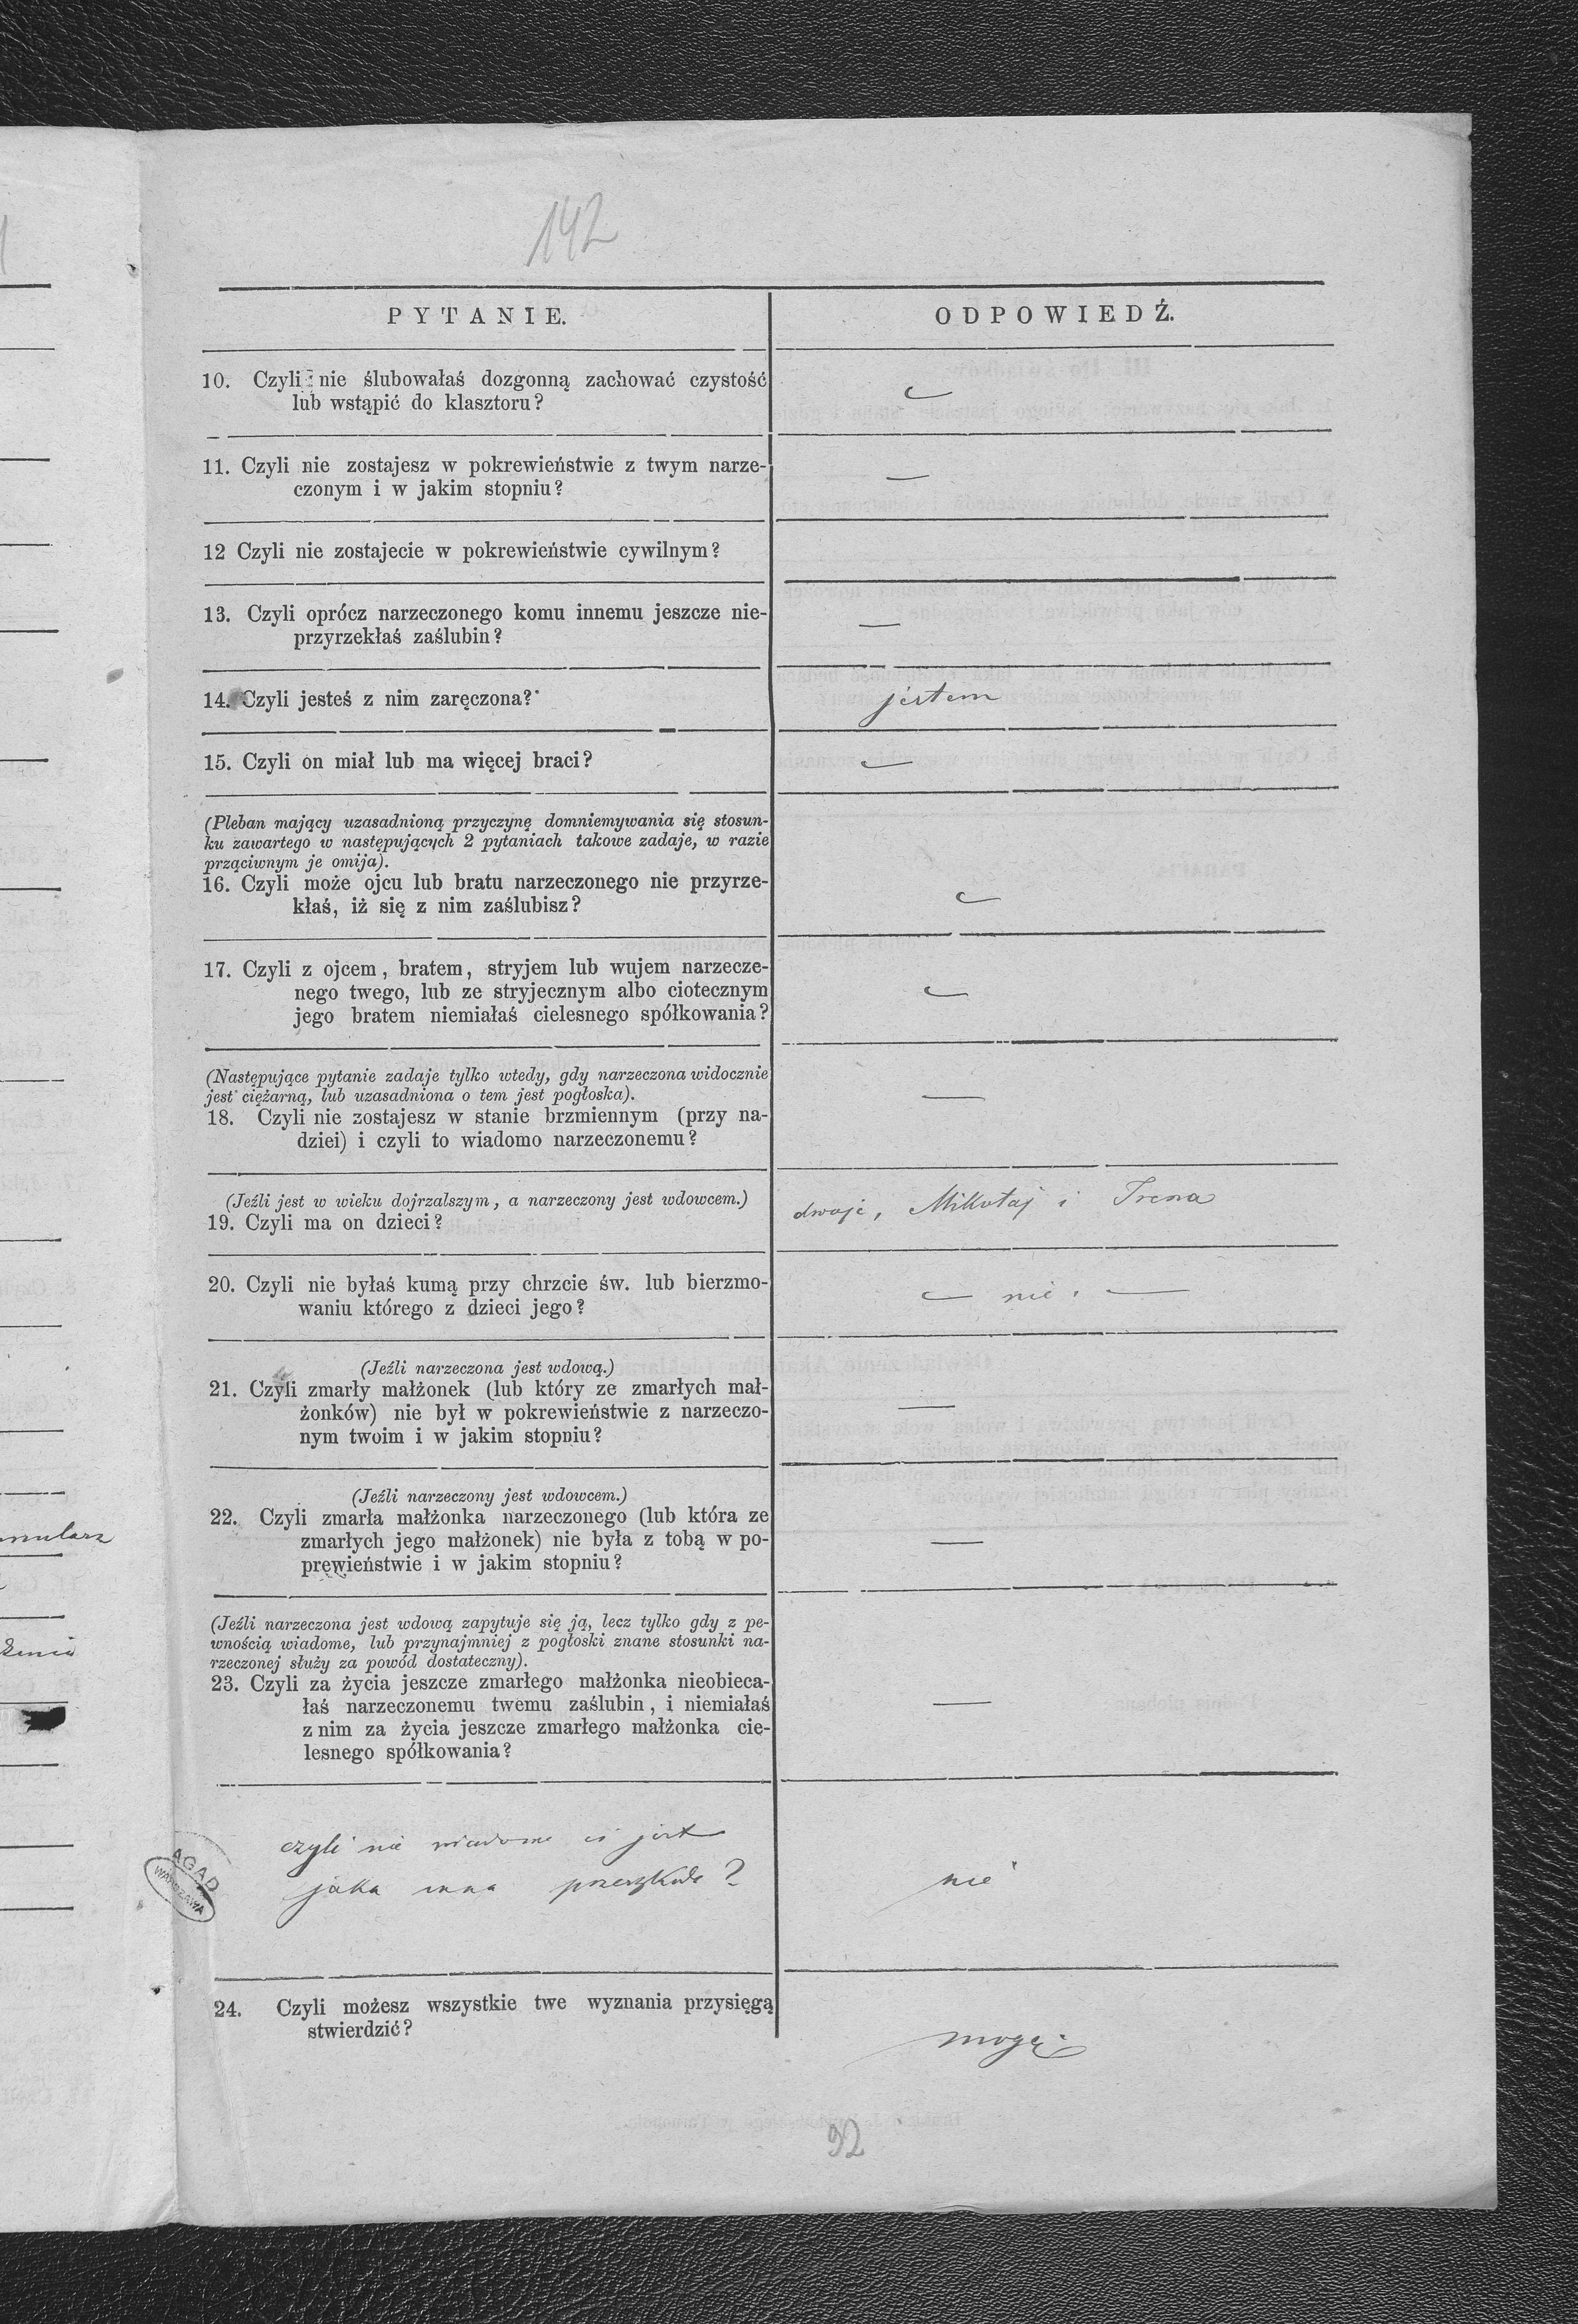 142
PYTANIE.
ODPOWIEDŹ.
10. Czyli nie ślubowałaś dozgonną zachować czystość
lub wstąpić do klasztoru?
11. Czyli nie zostajesz w pokrewieństwie z twym narze-
czonym i w jakim stopniu?
—
12 Czyli nie zostajecie w pokrewieństwie cywilnym?
13. Czyli oprócz narzeczonego komu innemu jeszcze nie-
przyrzekłaś zaślubin?
—
14. Czyli jesteś z nim zaręczona?
jestem
15. Czyli on miał lub ma więcej braci?
(Pleban mający uzasadnioną przyczynę domniemywania się stosun-
ku zawartego w następujących 2 pytaniach takowe zadaje, w razie
prząciwnym je omija).
16. Czyli może ojcu lub bratu narzeczonego nie przyrze-
kłaś, iż się z nim zaślubisz?
17. Czyli z ojcem, bratem, stryjem lub wujem narzecze-
nego twego, lub ze stryjecznym albo ciotecznym
jego bratem niemiałaś cielesnego spółkowania?
(Następujące pytanie zadaje tylko wtedy, gdy narzeczona widocznie
jest ciężarną, lub uzasadniona o tem jest pogłoska).
18. Czyli nie zostajesz w stanie brzmiennym (przy na-
dziei) i czyli to wiadomo narzeczonemu?
—
(Jeźli jest w wieku dojrzalszym, a narzeczony jest wdowcem.)
19. Czyli ma on dzieci?
dwoje, Mikołaj i Irena
20. Czyli nie byłaś kumą przy chrzcie św. lub bierzmo-
waniu którego z dzieci jego?
— nie. —
(Jeźli narzeczona jest wdową.)
21. Czyli zmarły małżonek (lub który ze zmarłych mał-
żonków) nie był w pokrewieństwie z narzeczo-
nym twoim i w jakim stopniu?
—
(Jeźli narzeczony jest wdowcem.)
22. Czyli zmarła małżonka narzeczonego (lub która ze
zmarłych jego małżonek) nie była z tobą w po-
prewieństwie i w jakim stopniu?
—
(Jeźli narzeczona jest wdową zapytuje się ją, lecz tylko gdy z pe-
wnością wiadome, lub przynajmniej z pogłoski znane stosunki na-
rzeczonej służy za powód dostateczny).
23. Czyli za życia jeszcze zmarłego małżonka nieobieca-
łaś narzeczonemu twemu zaślubin, i niemiałaś
z nim za życia jeszcze zmarłego małżonka cie-
lesnego spółkowania?
—
czyli nie wiadome ci jest
jaka inna przeszkoda?
nie
AGAD
WARSZAWA
24. Czyli możesz wszystkie twe wyznania przysięgą
stwierdzić?
mogę.
92